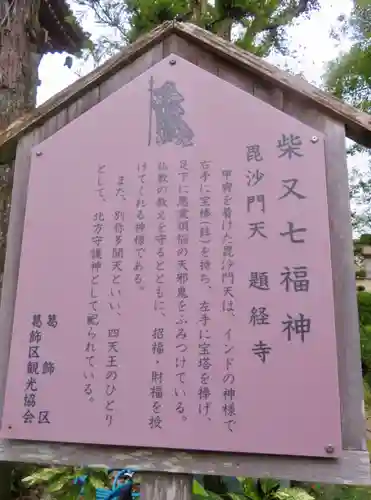 柴又七福神
毘沙門天 題経寺
甲冑を着けた毘沙門天は、インドの神様で
右手に宝棒(鉾)を持ち、左手に宝塔を捧げ、
足下に悪霊煩悩の天邪鬼をふみつけている。
仏教の教えを守るとともに、招福・財福を授
けてくれる神様である。
また、別称多聞天といい、四天王のひとり
として、北方守護神として祀られている。
葛飾区
葛飾区観光協会